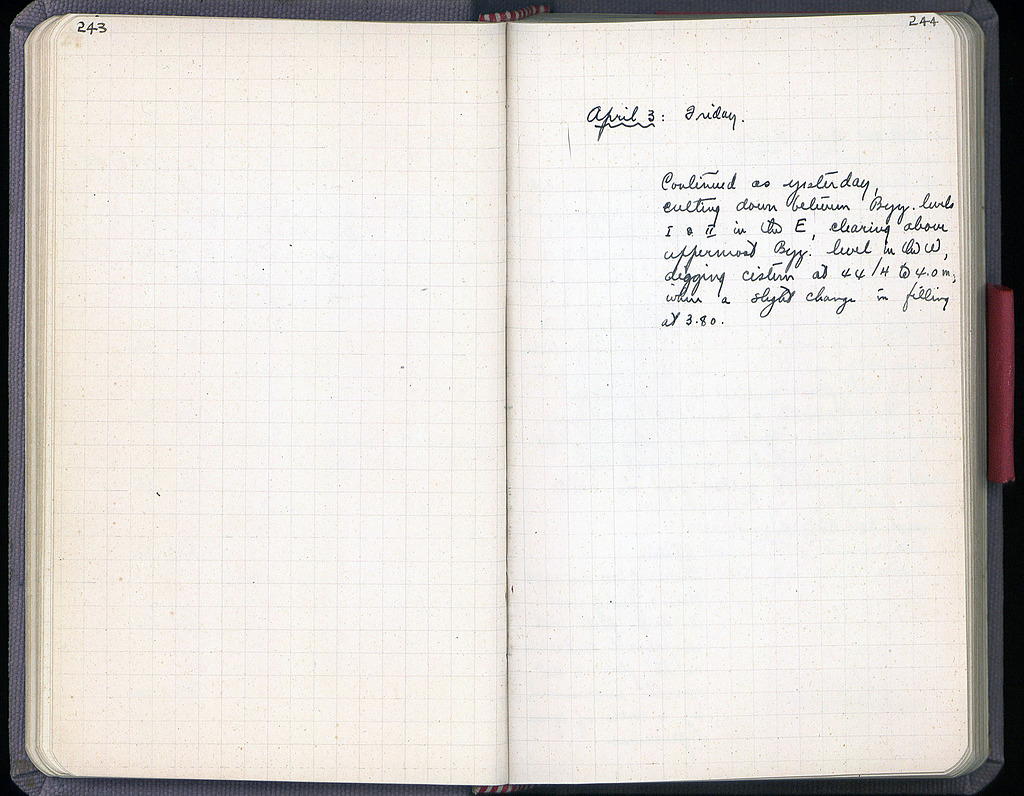 243
244
April 3: Friday.
Continued as yesterday,
cutting down between Byz. levels
I & II in the E, clearing above
uppermost Byz. level in the W,
digging cistern at 44/H to 4.0 m;
when a slight change in filling
at 3.80.